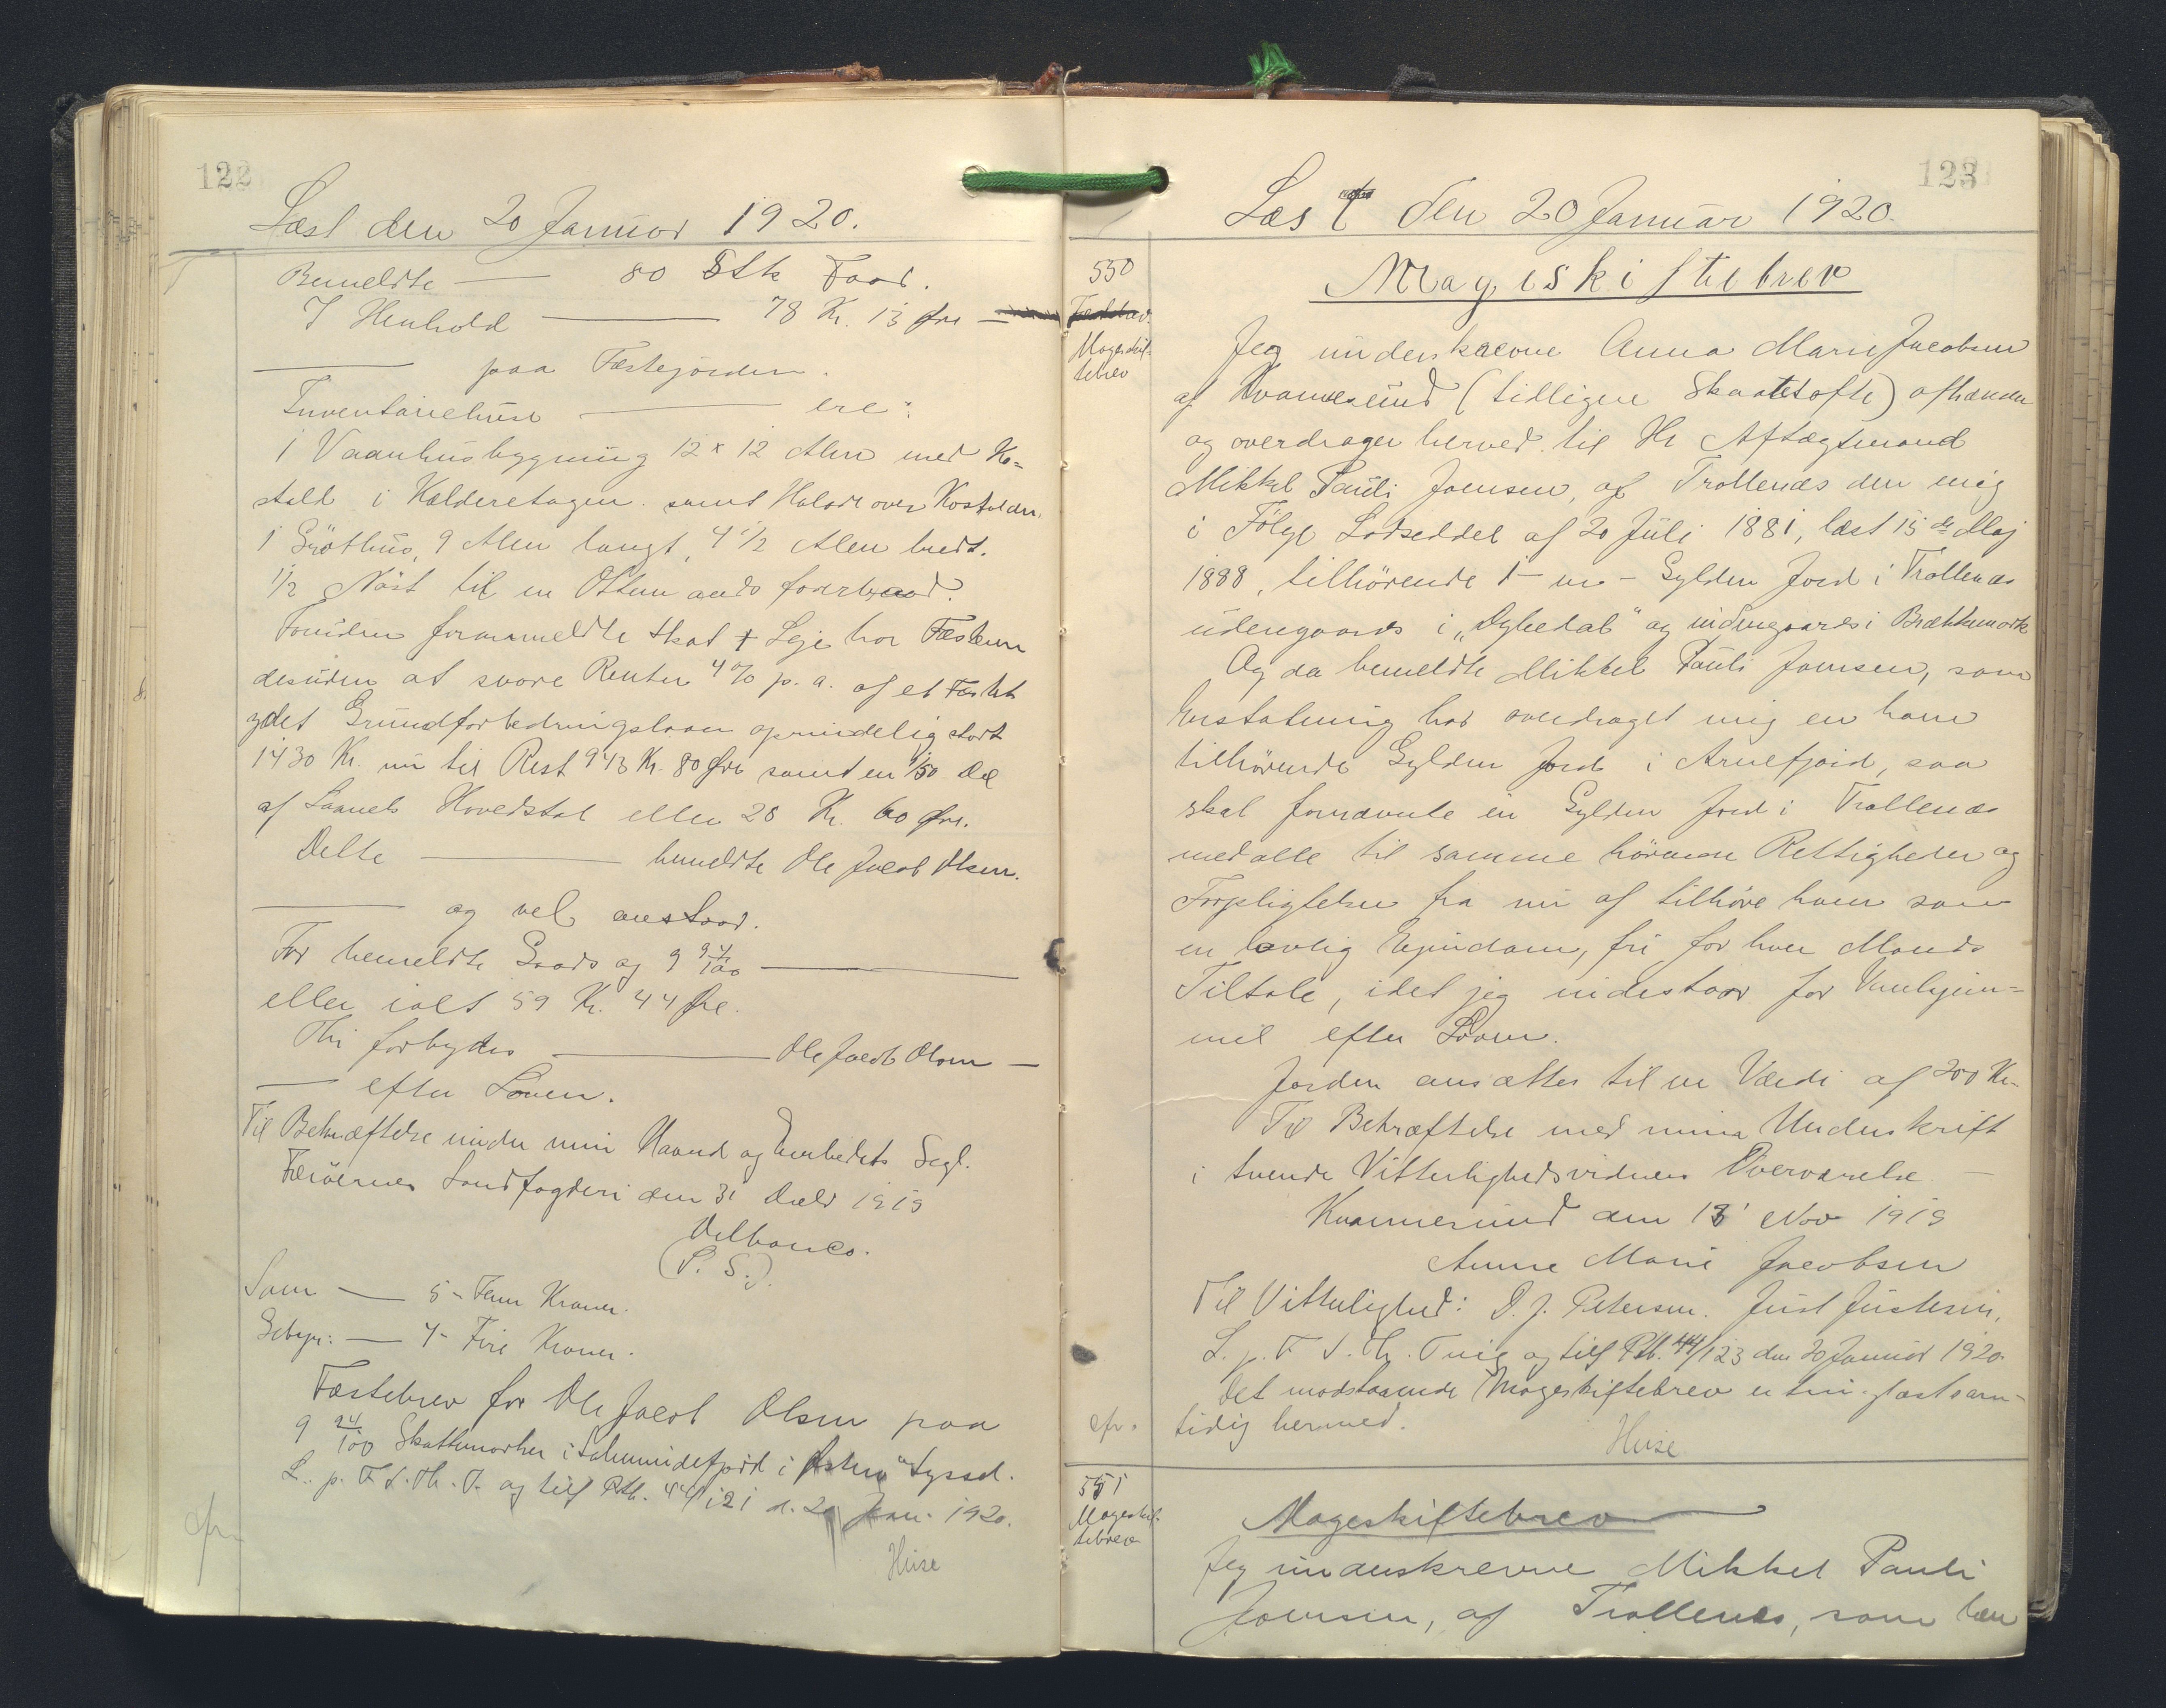 122
Læst den 20 Januar 1920.
Bemeldte — 80 Stk Faar.
I Henhold — 78 Kr. 13 Øre —
— paa Fæstejorden.
Inventariehuse — ere:
1 Vaanhusbygning 12 x 12 Alen med Ko=
stald i Kælderetagen samt Halvdel over Kostalden.
1 Gröthus, 9 Alen langt, 4 1/2 Alen bredt.
1/2 Nöst til en Ottemands
Foruden formeldte Skat + Leje har Fæsteren
desuden at svare Renter 4 % p. a. af et Fæstet
ydet Grundforbedringslaan oprindelig stort
1430 Kr. nu til Rest 943 Kr. 80 Øre samt en 1/50 Del
af Laanets Hovedstol eller 28 Kr. 60 Øre.
Dette — bemeldte Ole Jacob Olsen.
— og vel anstaar.
For bemeldte Gaards og 9 24/100 —
eller ialt 59 Kr. 44 Øre.
Thi forbydes — Ole Jacob Olsen —
— efter Loven.
Til Bekræftelse under min Haand og Embedets Segl.
Færöernes Landfogderi den 31 Decbr 1919
Delbanco.
(L. S.).
Sum — 5 - Fem Kroner.
Gebyr: — 4 - Fire Kroner.
Fæstebrev for Ole Jacob Olsen paa
9 24/100 Skattemarker i i Österø Syssel.
L. p. F. S. Th. T. og tilf Ptb. 44/121 d. 20 Jan. 1920.
cfr.
Huse
123
Læst den 20 Januar 1920.
550
Mageskif-
tebrev
Mageskiftebrev
Jeg underskrevne Anna Marie Jacobsen
af Kvannesund (tidligere Skaaletofte) afhænder
og overdrager herved til Hr Aftægtsmand
Mikkel Pauli Joensen, af Trollenæs den mig
i Følge Lodseddel af 20 Juli 1881, læst 15de Maj
1888, tilhörende 1 - en - Gylden Jord i Trollenæs
udengaards i "Dybedal" og indengaards i Brækkemark
Og da bemeldte Mikkel Pauli Joensen, som
Erstatning har overdraget mig en ham
tilhørende Gylden Jord i Arnefjord, saa
skal fornævnte en Gylden Jord i Trollenæs
med alle til samme hörende Rettigheder og
Forpligtelser fra nu af tilhöre ham som
en lovlig Ejendom, fri for hver Mands
Tiltale, idet jeg indestaar for Vanhjem=
mel efter Loven.
Jorden ansættes til en Værdi af 200 Kr.
Til Bekræftelse med min Underskrift
i tvende Vitterlighedsvidners Overværelse. —
Kvannesund den 13 Nov 1919
Anna Marie Jacobsen
Til Vitterlighed: D. J. Petersen. Just Justesen.
L. p. F S. Th. Ting og tilf Ptb. 44/123 den 20 Januar 1920.
Det modstaaende Mageskiftebrev er tinglæst sam-
cfr. tidig hermed.
Huse
551
Mageskif-
tebrev
Mageskiftebrev
Jeg underskrevne Mikkel Pauli
Joensen, af Trollenæs, som her